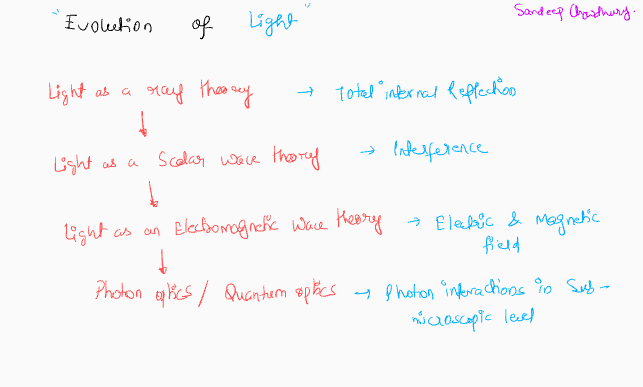 "Evolution of Light"
Sandeep Chowdhury.
Light as a ray theory → Total internal Reflection
Light as a Scalar wave theory → Interference
Light as an Electromagnetic Wave theory → Electric & Magnetic
field
Photon optics / Quantum optics → Photon interactions in Sub-
microscopic level